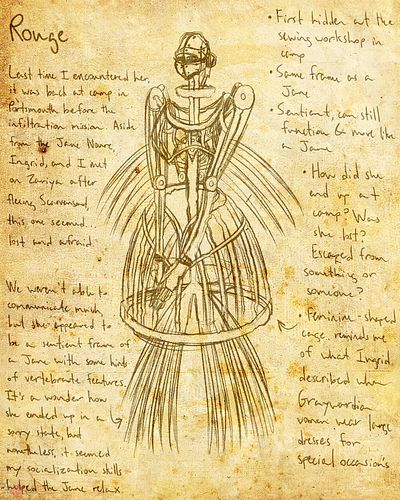 Rouge
Last time I encountered her,
it was back at camp in
Portsmouth before the
infiltration mission. Aside
from the Jane Noire,
Ingrid, and I met
on Zariya after
fleeing
this one seemed...
lost and afraid.
We weren't able to
communicate much,
but she appeared to
be a sentient frame of
a Jane with some hints
of vertebrate features.
It's a wonder how
she ended up in a
sorry state, but
nonetheless, it seemed
my socialization skills
helped the Jane relax.
• First hidden at the
sewing workshop in
camp
• Same frame as a
Jane
• Sentient, can still
function & move like
a Jane
• How did she
end up at
camp? Was
she lost?
Escaped from
something or
someone?
• Feminine-shaped
cage. reminds me
of what Ingrid
described when
Graywardian
women wear large
dresses for
special occasions